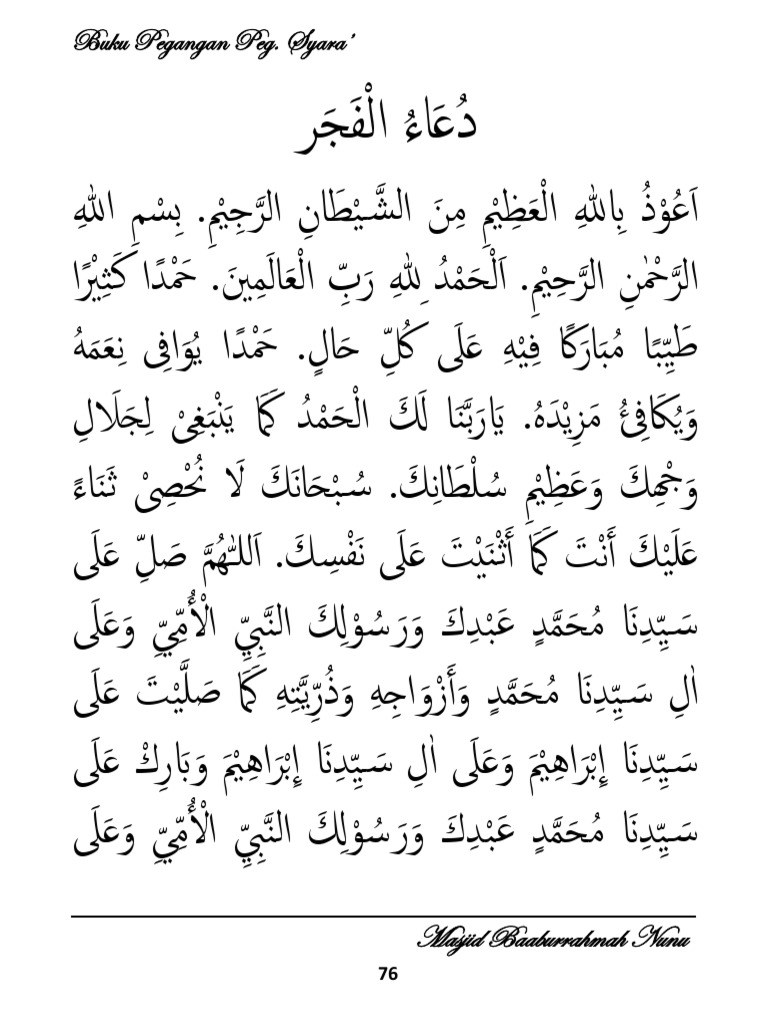 Buku Pegangan Peg. Syara'
دُعَاءُ الْفَجَر
اَعُوْذُ بِاللهِ الْعَظِيْمِ مِنَ الشَّيْطَانِ الرَّجِيْمِ. بِسْمِ اللهِ
الرَّحْمٰنِ الرَّحِيْمِ. اَلْحَمْدُ لِلهِ رَبِّ الْعَالَمِينَ. حَمْدًا كَثِيْرًا
طَيِّبًا مُبَارَكًا فِيْهِ عَلَى كُلِّ حَالٍ. حَمْدًا يُوَافِى نِعَمَهُ
وَيُكَافِئُ مَزِيْدَهُ. يَارَبَّنَا لَكَ الْحَمْدُ كَمَا يَنْبَغِىْ لِجَلَالِ
وَجْهِكَ وَعَظِيْمِ سُلْطَانِكَ. سُبْحَانَكَ لَا نُحْصِىْ ثَنَاءً
عَلَيْكَ أَنْتَ كَمَا أَثْنَيْتَ عَلَى نَفْسِكَ. اَللّٰهُمَّ صَلِّ عَلَى
سَيِّدِنَا مُحَمَّدٍ عَبْدِكَ وَرَسُوْلِكَ النَّبِيِّ الْأُمِّيِّ وَعَلَى
اٰلِ سَيِّدِنَا مُحَمَّدٍ وَأَزْوَاجِهِ وَذُرِّيَّتِهِ كَمَا صَلَّيْتَ عَلَى
سَيِّدِنَا إِبْرَاهِيْمَ وَعَلَى اٰلِ سَيِّدِنَا إِبْرَاهِيْمَ وَبَارِكْ عَلَى
سَيِّدِنَا مُحَمَّدٍ عَبْدِكَ وَرَسُوْلِكَ النَّبِيِّ الْأُمِّيِّ وَعَلَى
Masjid Baaburrahmah Nunu
76